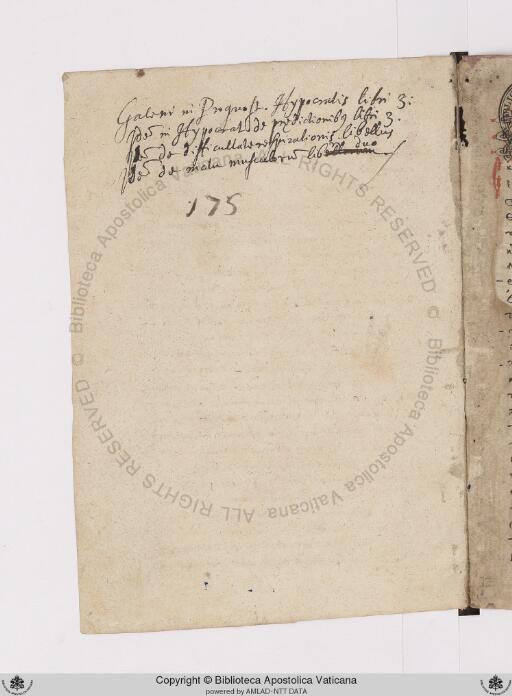 Galeni in Prognost. Hypocratis libri 3.
Idē in Hypocrat de prędictionibꝰ libri 3.
Idē de difficultate respirationis libellus
Idē de motu musculorum lib duo
175
Copyright © Biblioteca Apostolica Vaticana
powered by AMLAD-NTT DATA
© Biblioteca Apostolica Vaticana ALL RIGHTS RESERVED © Biblioteca Apostolica Vaticana ALL RIGHTS RESERVED